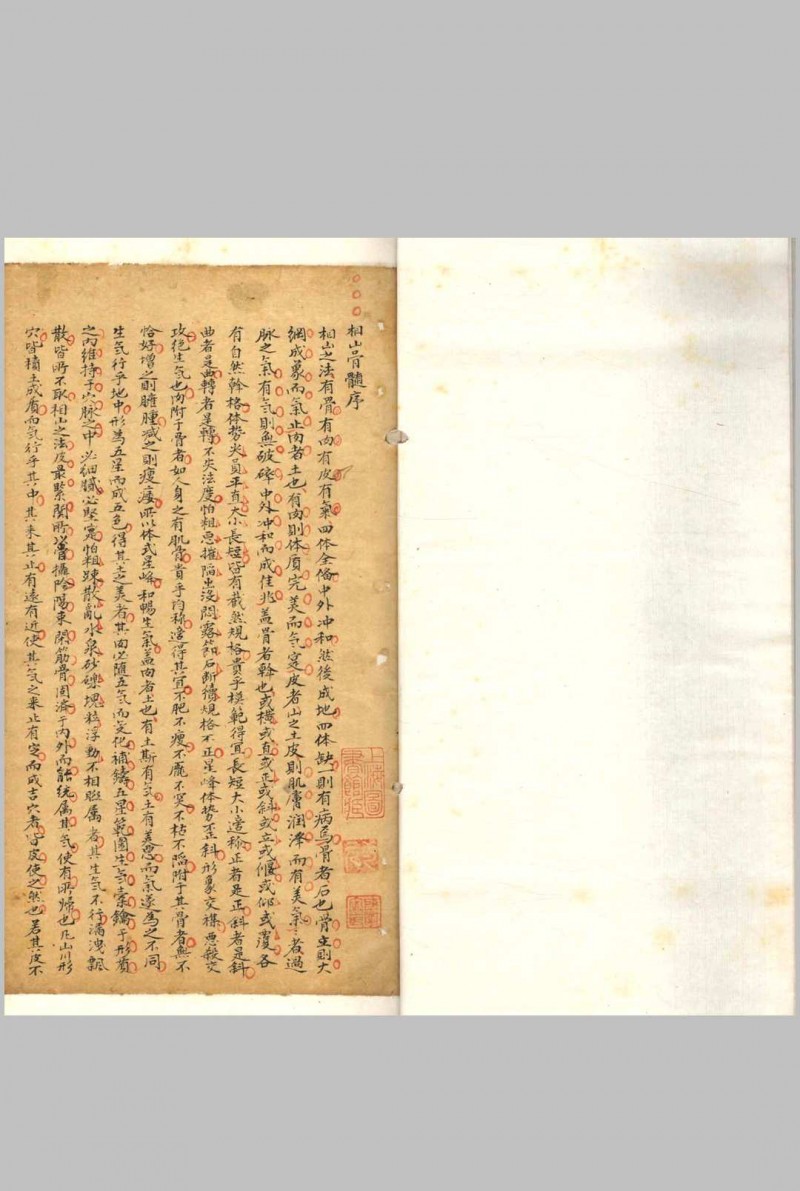 相山骨髓序
相山之法有骨有肉有皮有氣四体全俻中外冲和然後成地四体缺一則有病焉骨者石也骨立則大
綱成象而氣止肉者土也有肉則体质完美而气寔皮者山之土皮則肌膚润泽而有美氣氣者過
脉之氣有气則無破碎中外冲和而成佳兆盖骨者幹也或横或直或正或斜或立或偃或仰或覆各
有自然幹格体势尖員平直大小長短皆有截然規格貴乎模範得宜長短大小適称正者是正斜者是斜
曲者是曲轉者是轉不失法度怕粗惡摧陷出没悶露筋石断續規格不正星峰体势歪斜形象交襍惡殺交
攻絕生气也肉附于骨者如人身之有肌膏貴乎均称適得其宜不肥不瘦不尨不冥不枯不陷附于其骨者無不
恰好增之則臃腫减之則瘦瘻所以体式星峰和暢生氣盖肉者土也有土斯有气土有美惡而氣遂為之不同
生气行乎地中形為五星而成五色得其土之美者其面必随五气而变化補鑄五星範圍生气槖鑰于形質
之内維持于穴脉之中必細膩必堅寔怕粗踈散亂水泉砂礫塊粒浮動不相聯属者其生气不行漏洩飄
散皆所不取相山之法皮最緊関所以管攝陰陽束閉筋骨周済于内外而能統属其气使有所歸也凡山川形
穴皆積土成质而气行乎其中其来其止有遠有近使其气之来止有定而成吉穴者皆皮使之然也若其皮不
上海圖書館藏